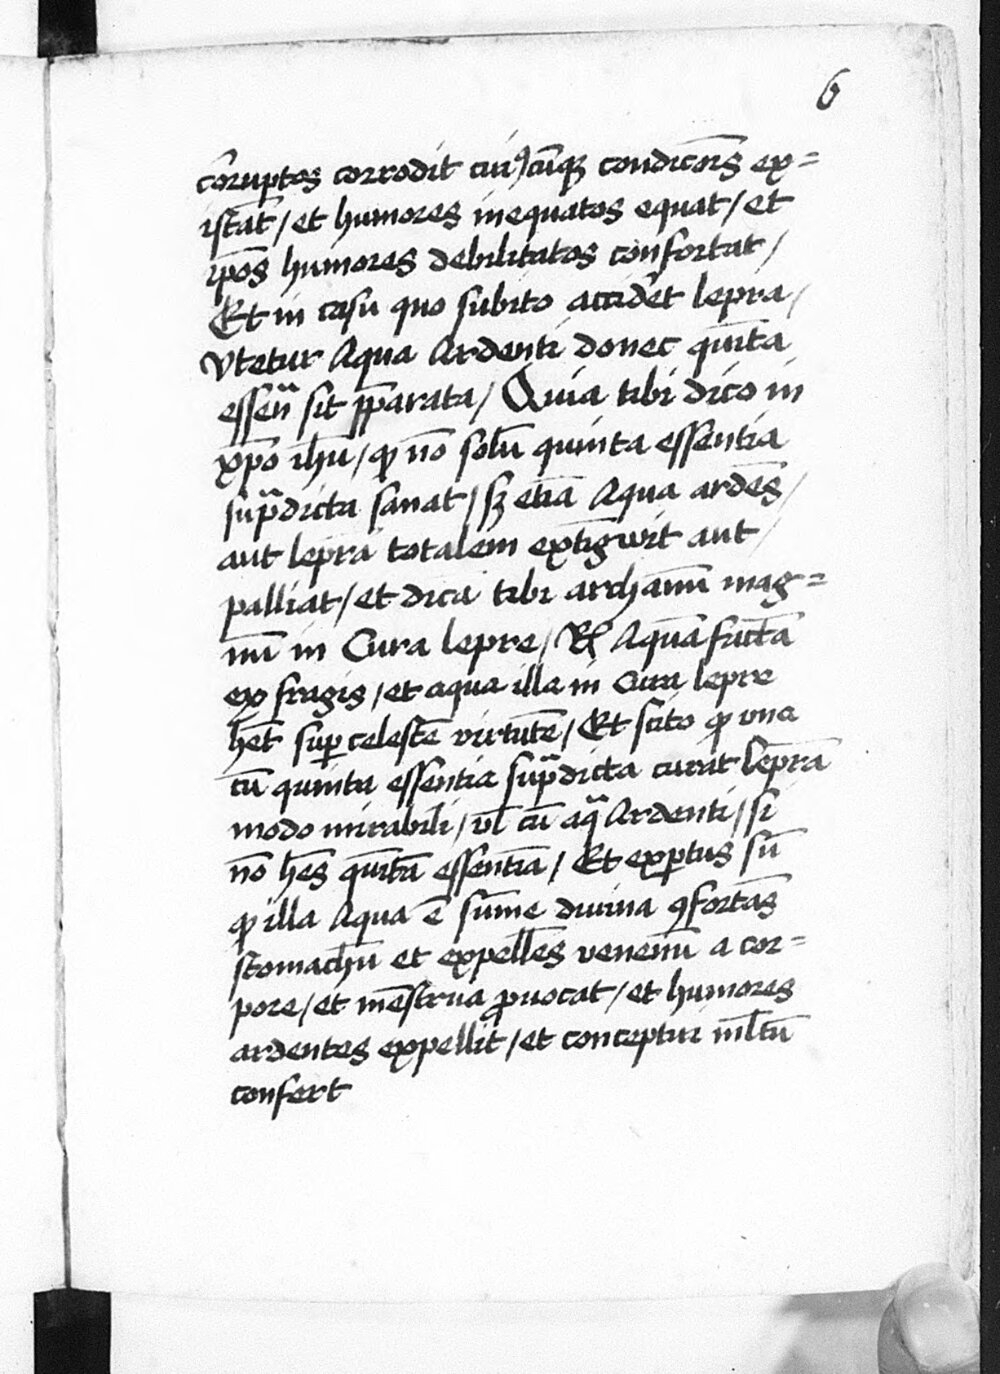 6
cōruptos corrodit cuiꝰcūqꝫ condicōīs ex=
istāt / et humores inequatos equat / et
ip̄os humores debilitatos confortat /
Et in casu quo subito accidēt lepra /
vtetur Aqua Ardenti donec quīta
essen̄ sit p̄parata / Quia tibi dico in
xp̄o ih̄u / ꝙ nō solū quinta essentia
sup̄dicta sanat / sꝫ etiā Aqua ardēs /
aut leprā totalem extīgwit aut /
palliat / et dicā tibi archanū mag=
nū in Cura lepre / Rͬ Aquā factā
ex fragis / et aqua illa in Cura lepre
hēt suꝑ celestē virtutē / Et scito ꝙ vna
cū quinta essentia sup̄dicta curat leprā
modo mirabili / vl̄ cū aq̄ Ardenti / si
nō hēs quītā essentiā / Et exꝑtus sū
ꝙ illa Aqua ē sūme diuina ꝯfortās
stomachū et expellēs venenū a cor=
pore / et mēstrua ꝓuocat / et humores
ardentes expellit / et conceptui ml̄tū
confert